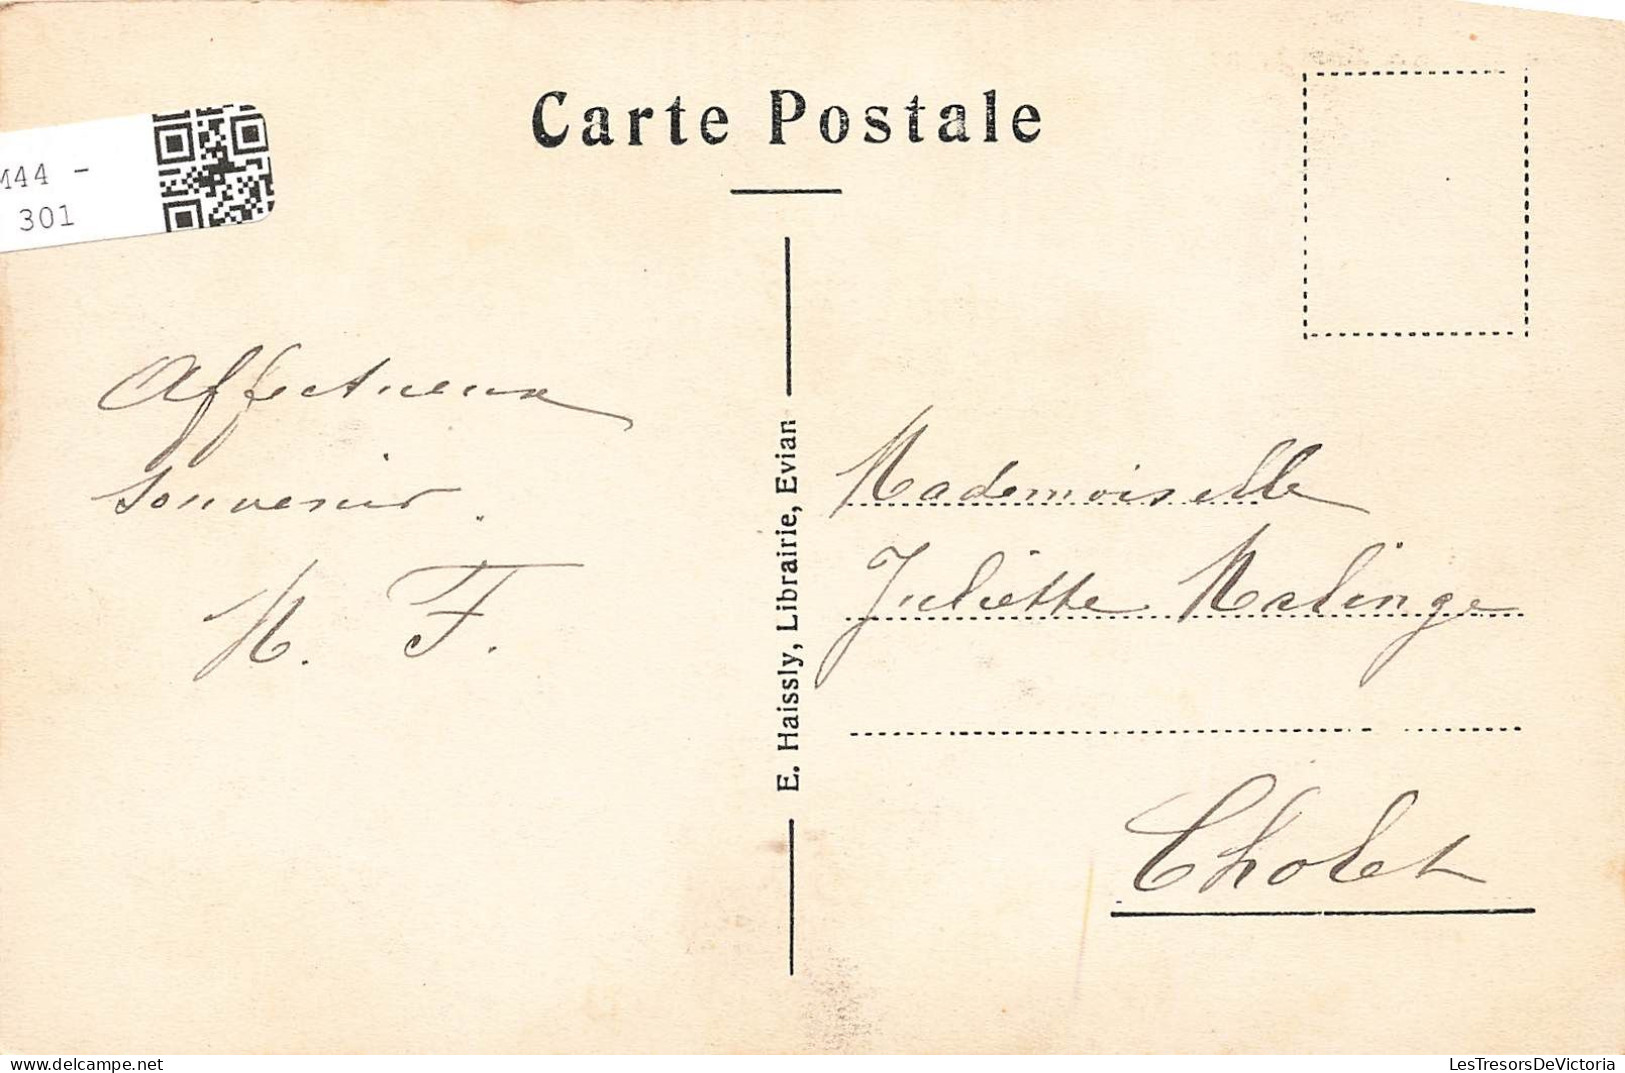 Carte Postale
M44 -
301
Affectueux
souvenir.
M. F.
E. Haissly, Librairie, Evian
Mademoiselle
Juliette Malinge
Cholet
delcampe.net
LesTresorsDeVictoria